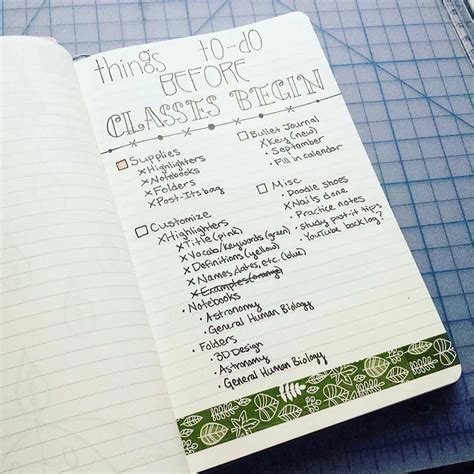 things to-do
BEFORE
CLASSES BEGIN
Supplies
x Highlighters
x Notebooks
x Folders
x Post-Its bag
Customize
x Highlighters
x Title (pink)
x Vocab/Keywords (green)
x Definitions (yellow)
x Names, dates, etc. (blue)
x Examples (orange)
• Notebooks
• Astronomy
• General Human Biology
• Folders
• 3D Design
• Astronomy
• General Human Biology
Bullet Journal
x Key (new)
• September
• Fill in calendar
Misc
• Doodle shoes
x Nails done
• Practice notes
• study post-it tips
• YouTube backlog?